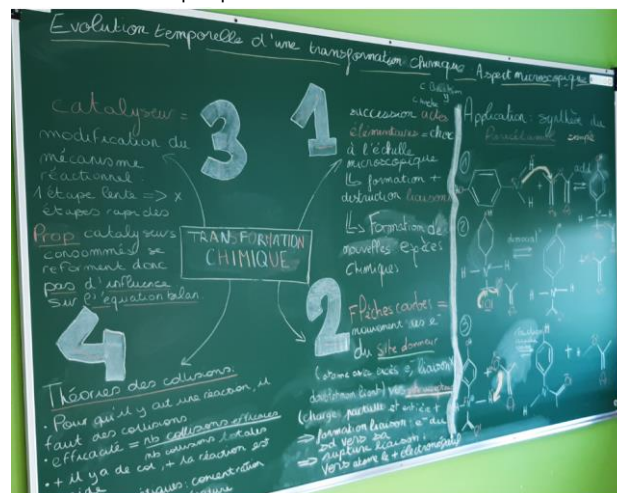 Evolution temporelle d'une transformation chimique. Aspect microscopique
catalyseur =
modification du
mécanisme
réactionnel :
1 étape lente => x
étapes rapides
Prop catalyseurs
consommés se
reforment donc
pas d'influence
sur l'équation bilan.
3
1
succession actes
élémentaires = choc
à l'échelle
microscopique
↳ formation +
destruction liaisons
↳ Formation de
nouvelles espèces
chimiques
TRANSFORMATION
CHIMIQUE
4
2
Flèches courbes =
mouvement des e-
du site donneur
vers
=> formation liaison : e- du
sd vers sa
=> rupture liaison :
vers atome le + électronégatif
Théories des collisions:
. Pour qu'il y ait une réaction, il
faut des collisions
. efficacité = nb collisions efficaces
nb collisions totales
. + il y a de col, + la réaction est
concentration
Application : synthèse du
Paracétamol
1
2
3